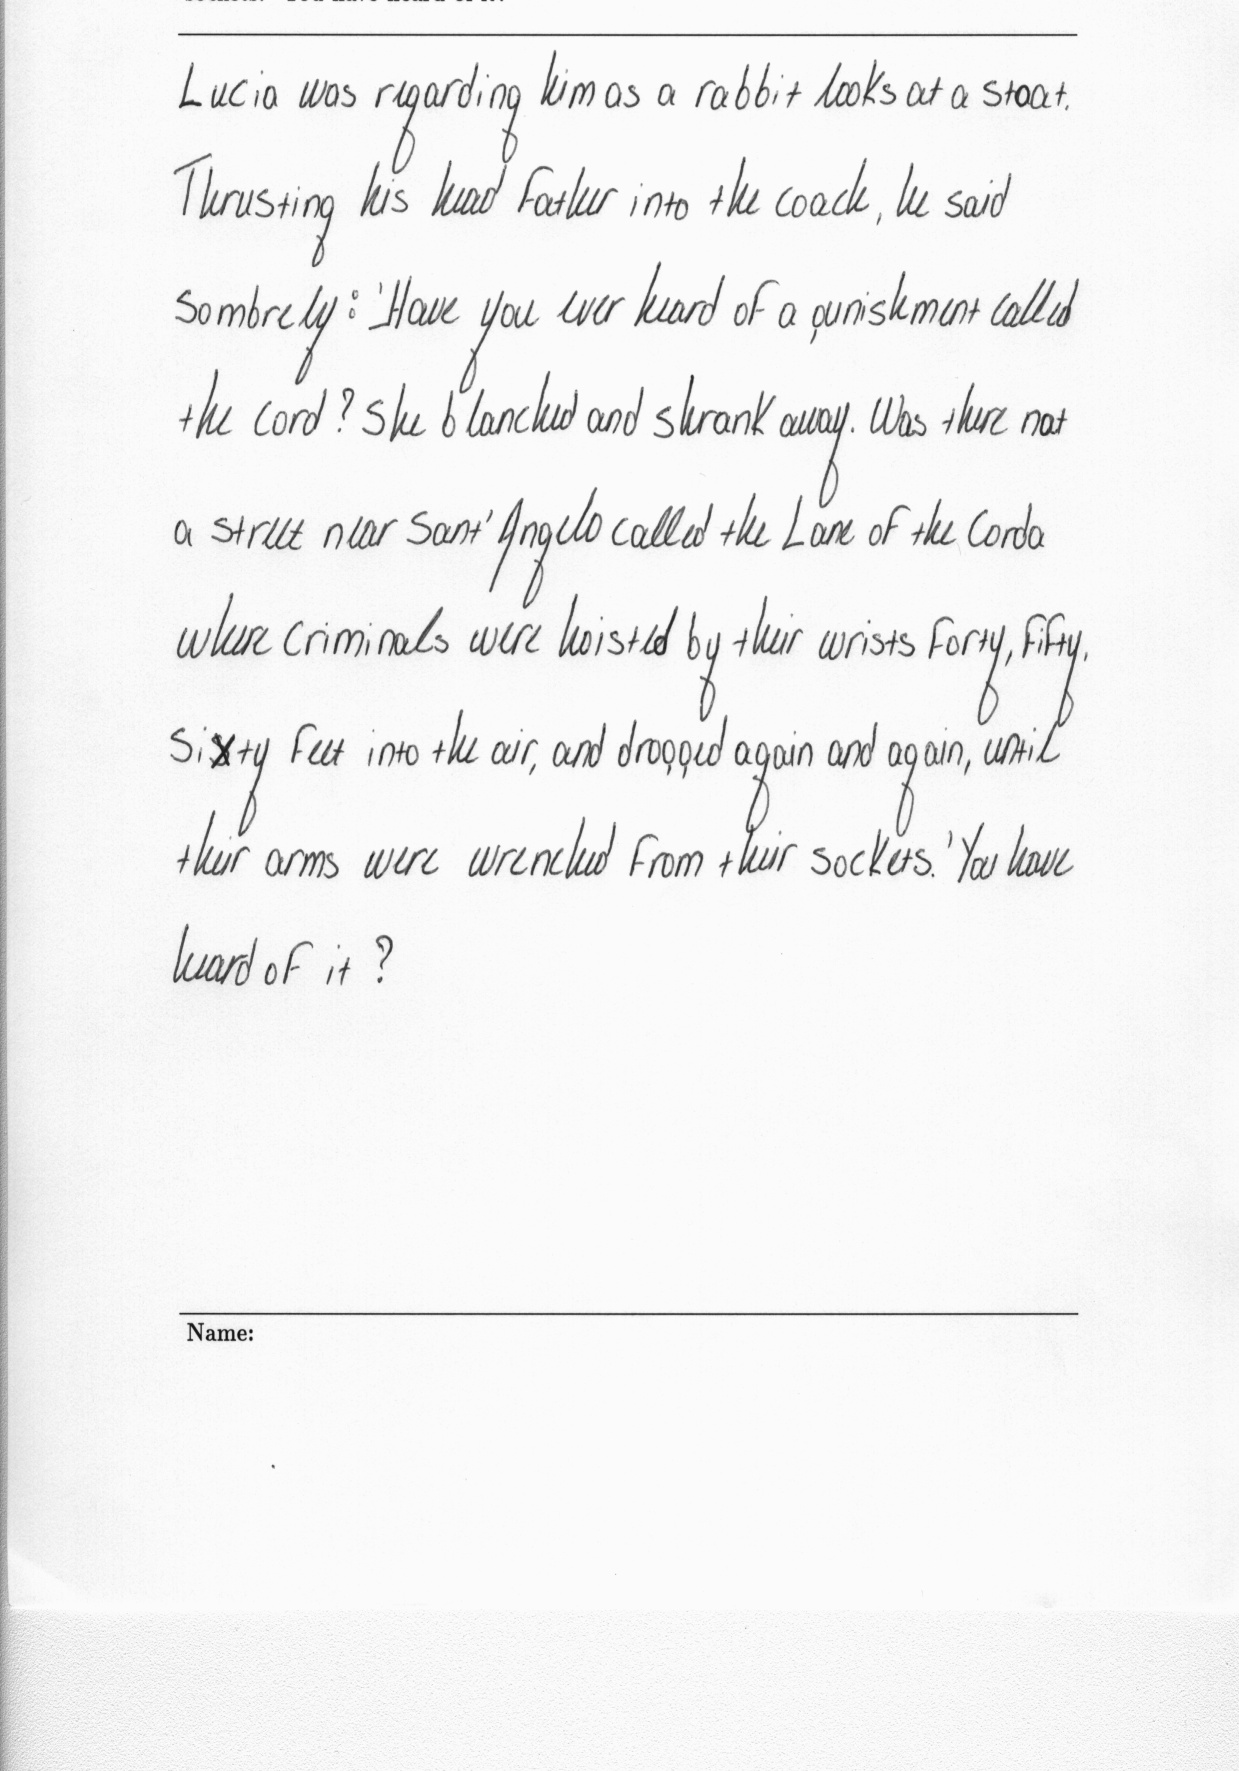 Lucia was regarding him as a rabbit looks at a stoat.
Thrusting his head Father into the coach, he said
sombrely: 'Have you ever heard of a punishment called
the cord? She blanched and shrank away. Was there not
a street near Sant' Angelo called the Lane of the Corda
where criminals were hoisted by their wrists forty, fifty,
sixty feet into the air, and dropped again and again, until
their arms were wrenched from their sockets. 'You have
heard of it?
Name: